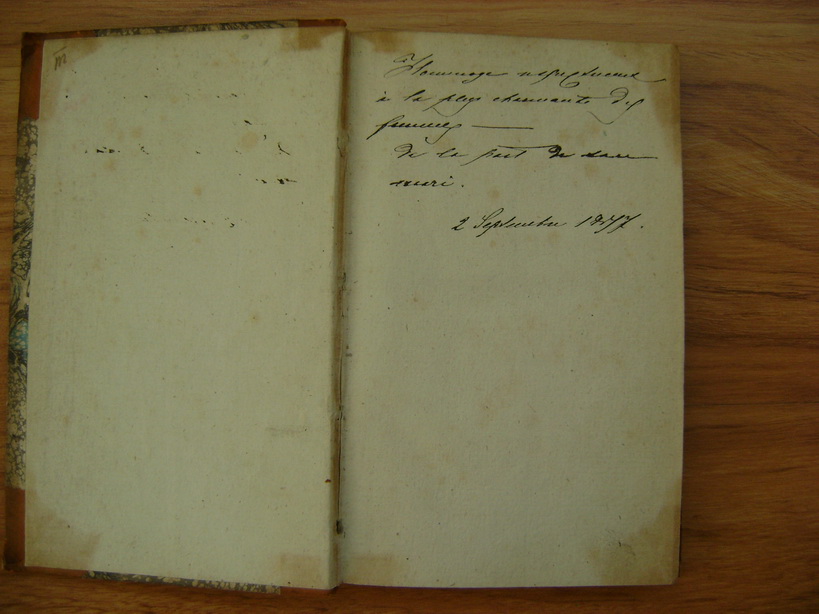 m
Hommage respectueux
à la plus charmante des
femmes —
de la part de son
mari.
2 Septembre 1857.